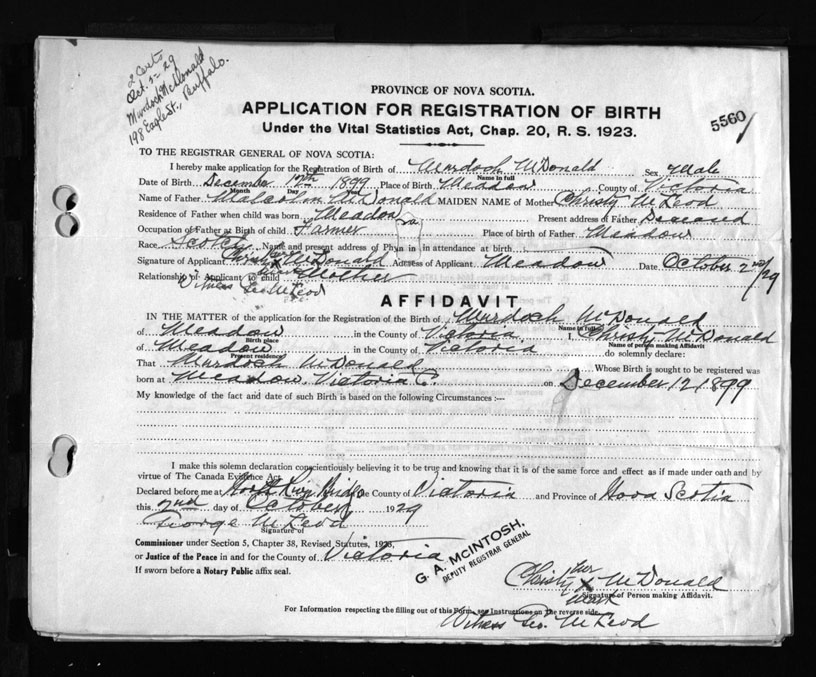 2 Certs
Oct. 5-29
Murdoch McDonald
198 Eagle St., Buffalo.
PROVINCE OF NOVA SCOTIA.
APPLICATION FOR REGISTRATION OF BIRTH
Under the Vital Statistics Act, Chap. 20, R. S. 1923.
5560
TO THE REGISTRAR GENERAL OF NOVA SCOTIA:
I hereby make application for the Registration of Birth of Murdoch McDonald Sex Male
Name in full
Date of Birth December 12th 1899 Place of Birth Meadow County of Victoria
Month Day Year
Name of Father Malcolm McDonald MAIDEN NAME of Mother Christy McLeod
Residence of Father when child was born Meadow Present address of Father Deceased
Occupation of Father at Birth of child Farmer Place of birth of Father Meadow
Race Scotch Name and present address of Physician in attendance at birth
Signature of Applicant Christy her x McDonald Address of Applicant Meadow Date October 2nd/29
Relationship of Applicant to child mark Mother
Witness Geo. McLeod
AFFIDAVIT
IN THE MATTER of the application for the Registration of the Birth of Murdoch McDonald
Name in full
of Meadow in the County of Victoria I, Christy McDonald
Birth place Name of person making Affidavit
of Meadow in the County of Victoria do solemnly declare:
Present residence
That Murdoch McDonald Whose Birth is sought to be registered was
born at Meadow, Victoria C. on December 12, 1899
My knowledge of the fact and date of such Birth is based on the following Circumstances :—
I make this solemn declaration conscientiously believing it to be true and knowing that it is of the same force and effect as if made under oath and by
virtue of The Canada Evidence Act.
Declared before me at North River Bridge the County of Victoria and Province of Nova Scotia
this 2nd day of October 1929
George McLeod
Signature of
Commissioner under Section 5, Chapter 38, Revised Statutes, 1923,
or Justice of the Peace in and for the County of Victoria
If sworn before a Notary Public affix seal.
G. A. MCINTOSH,
DEPUTY REGISTRAR GENERAL
Christy her x McDonald
mark
Signature of Person making Affidavit.
For Information respecting the filling out of this Form, see Instructions on the reverse side.
Witness Geo. McLeod